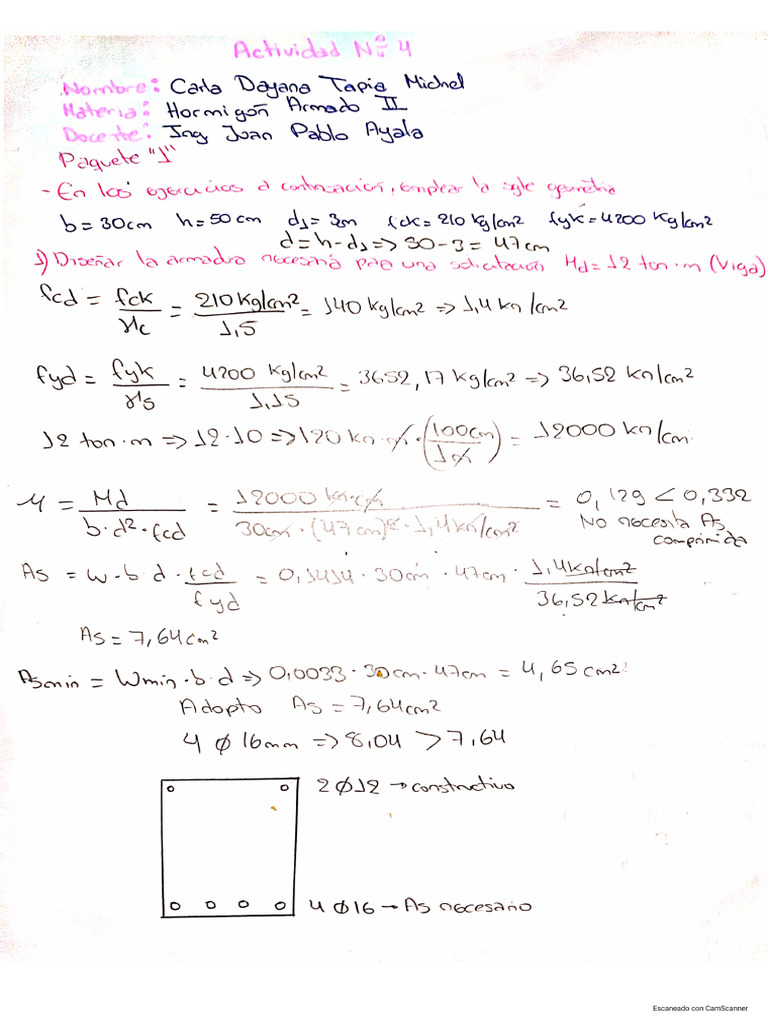 Actividad Nº 4
Nombre: Carla Dayana Tapia Michel
Materia: Hormigón Armado II
Docente: Ing Juan Pablo Ayala
Paquete "1"
- En los ejercicios a continuación, emplear la sgte geometria
b = 30cm h = 50 cm d1 = 3cm fck = 210 kg/cm² fyk = 4200 Kg/cm²
d = h - d1 => 50 - 3 = 47cm
1) Diseñar la armadura necesaria para una solicitación Md = 12 ton·m (Viga)
fcd = fck/γc = 210 Kg/cm²/1,5 = 140 Kg/cm² => 1,4 kn/cm²
fyd = fyk/γs = 4200 Kg/cm²/1,15 = 3652,17 kg/cm² => 36,52 kn/cm²
12 ton·m => 12·10 => 120 kn·m·(100cm/1m) = 12000 kn/cm
μ = Md/b·d²·fcd = 12000 kn·cm/30cm·(47cm)²·1,4kn/cm² = 0,129 < 0,332
No necesita As
comprimida
As = w·b·d·fcd/fyd = 0,1414·30cm·47cm·1,4kn/cm²/36,52 kn/cm²
As = 7,64cm²
Asmin = Wmin·b·d => 0,0033·30cm·47cm = 4,65 cm²
Adopto As = 7,64cm²
4 Ø 16mm => 8,04 > 7,64
2Ø12 → constructivo
4 Ø16 → As necesario
Escaneado con CamScanner